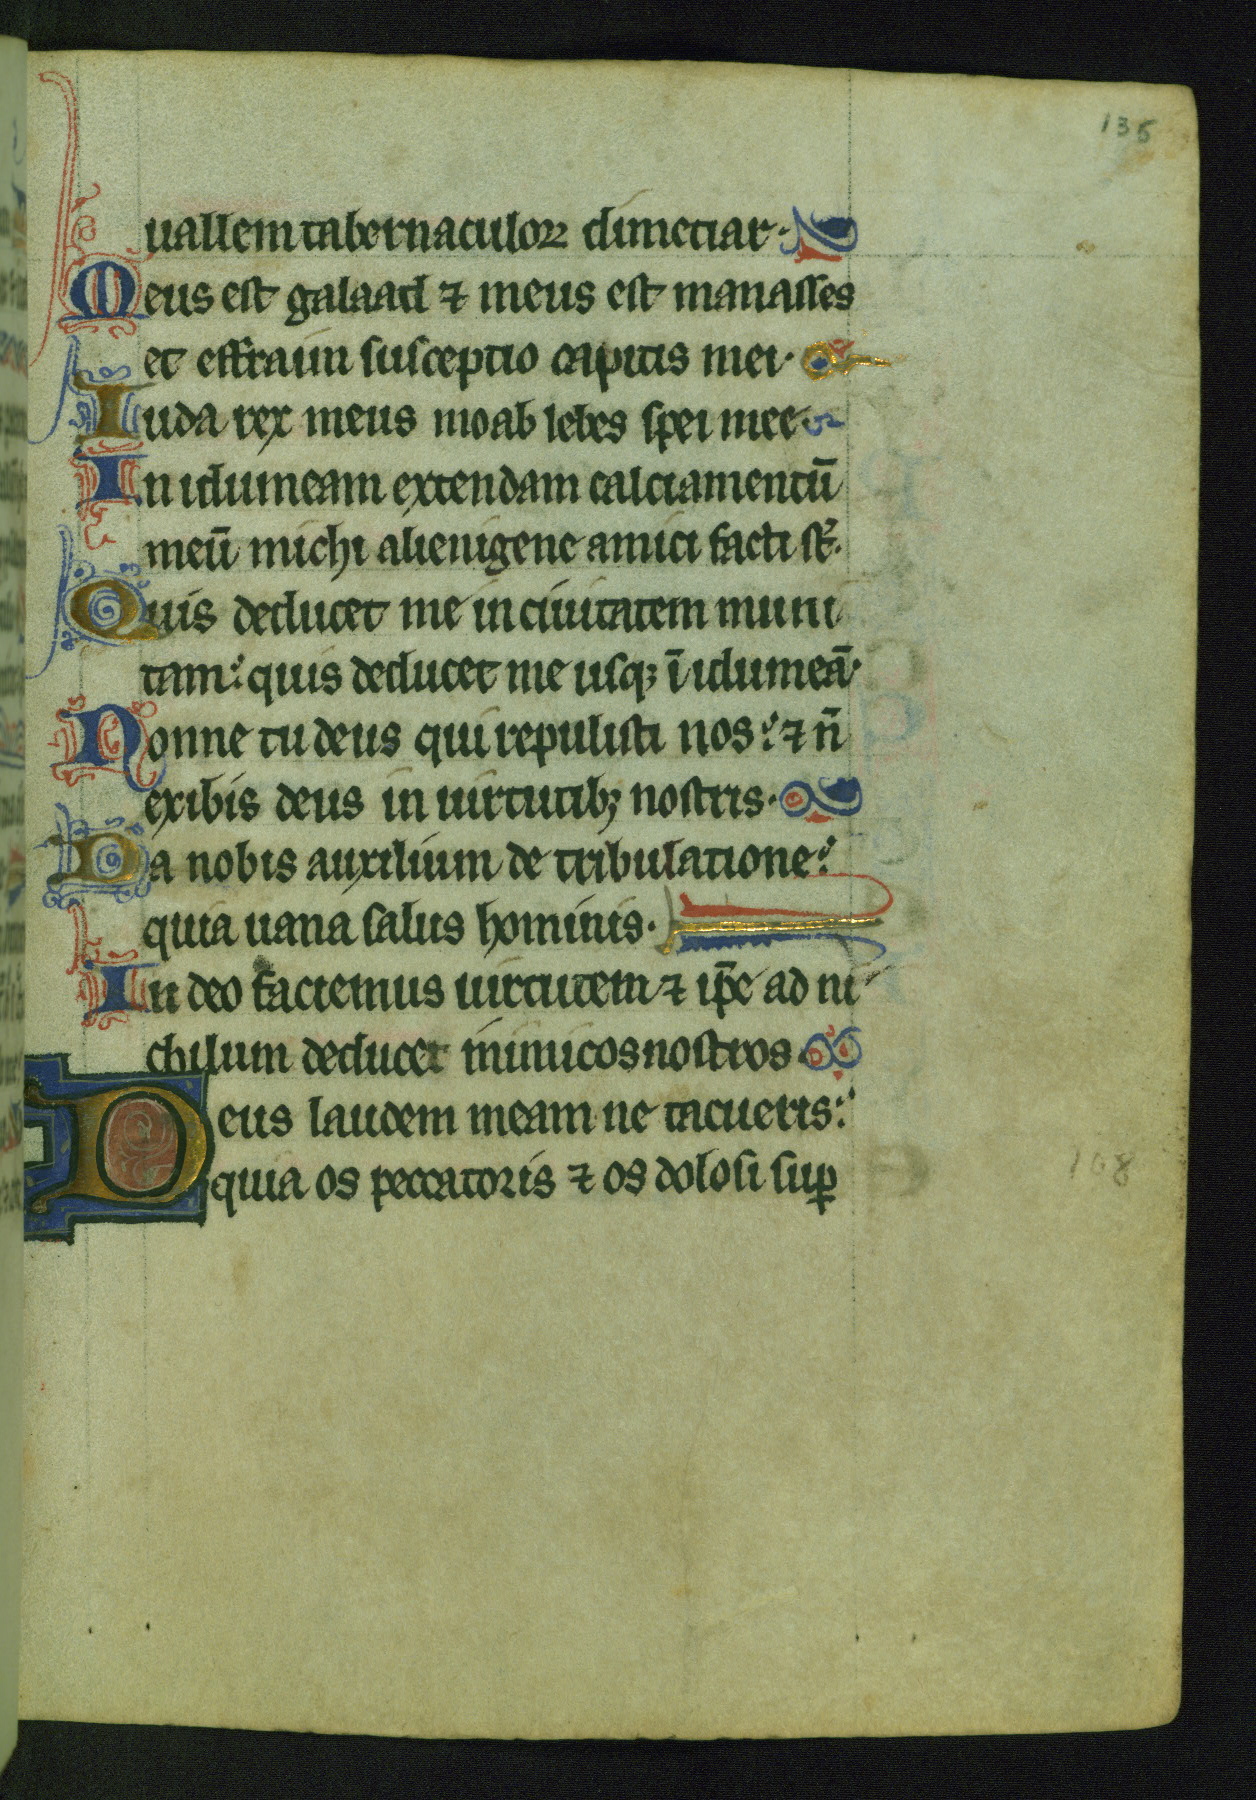 135
uallem tabernaculoꝝ dimetiar·
Meus est galaad ⁊ meus est manasses
et effraim susceptio capitis mei·
Iuda rex meus moab lebes spei mee·
In idumeam extendam calciamentū
meū michi alienigene amici facti st̄.
Quis deducet me in ciuitatem muni
tam: quis deducet me usqꝫ ī idumeā·
Nonne tu deus qui repulisti nos: ⁊ n̄
exibis deus in uirtutibꝫ nostris·
Da nobis auxilium de tribulatione:
quia uana salus hominis·
In deo faciemus uirtutem ⁊ ip̄e ad ni
chilum deducet inimicos nostros
Deus laudem meam ne tacueris:
quia os peccatoris ⁊ os dolosi suꝑ
108